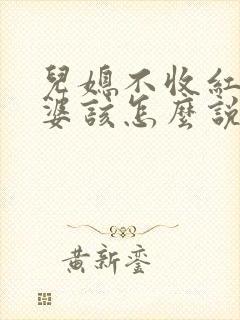 兒媳不收紅
婆該怎麼說
黃新鑾